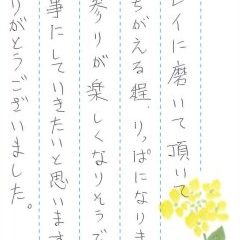 レイに磨いて頂いて
ちがえる程、りっぱになりま
参りが楽しくなりそうで
事にしていきたいと思います
りがとうございました。